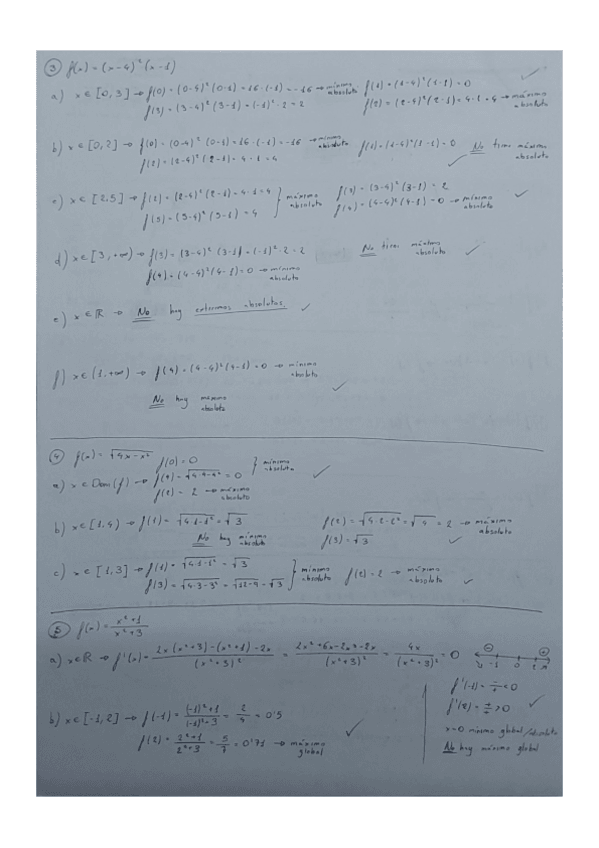 ③ f(x) = (x-4)² (x-1)
a) x ∈ [0,3] → f(0) = (0-4)² (0-1) = 16·(-1) = -16 → mínimo absoluto f(1) = (1-4)² (1-1) = 0
f(3) = (3-4)² (3-1) = (-1)²·2 = 2 f(2) = (2-4)² (2-1) = 4·1 = 4 → máximo absoluto
b) x ∈ [0,2) → f(0) = (0-4)² (0-1) = 16·(-1) = -16 → mínimo absoluto f(1) = (1-4)² (1-1) = 0 No tiene máximo absoluto
f(2) = (2-4)² (2-1) = 4·1 = 4
c) x ∈ [2,5] → f(2) = (2-4)² (2-1) = 4·1 = 4 } máximo absoluto f(3) = (3-4)² (3-1) = 2
f(5) = (5-4)² (5-1) = 4 f(4) = (4-4)² (4-1) = 0 → mínimo absoluto
d) x ∈ [3,+∞) → f(3) = (3-4)² (3-1) = (-1)²·2 = 2 No tiene máximo absoluto
f(4) = (4-4)² (4-1) = 0 → mínimo absoluto
e) x ∈ ℝ → No hay extremos absolutos.
f) x ∈ (1,+∞) → f(4) = (4-4)² (4-1) = 0 → mínimo absoluto
No hay máximo absoluto
④ f(x) = √4x-x²
f(0) = 0
a) x ∈ Dom(f) → f(4) = √4·4-4² = 0 } mínimo absoluto
f(2) = 2 → máximo absoluto
b) x ∈ [1,4) → f(1) = √4·1-1² = √3 f(2) = √4·2-2² = √4 = 2 → máximo absoluto
No hay mínimo absoluto f(3) = √3
c) x ∈ [1,3] → f(1) = √4·1-1² = √3 } mínimo absoluto f(2) = 2 → máximo absoluto
f(3) = √4·3-3² = √12-9 = √3
⑤ f(x) = x²+1 / x²+3
a) x ∈ ℝ → f'(x) = 2x(x²+3)-(x²+1)·2x / (x²+3)² = 2x³+6x-2x³-2x / (x²+3)² = 4x / (x²+3)² = 0
-1 0 2
f'(-1) = -/+ < 0
f'(2) = +/+ > 0
x=0 mínimo global/absoluto
No hay máximo global
b) x ∈ [-1,2] → f(-1) = (-1)²+1 / (-1)²+3 = 2/4 = 0'5
f(2) = 2²+1 / 2²+3 = 5/7 = 0'71 → máximo global